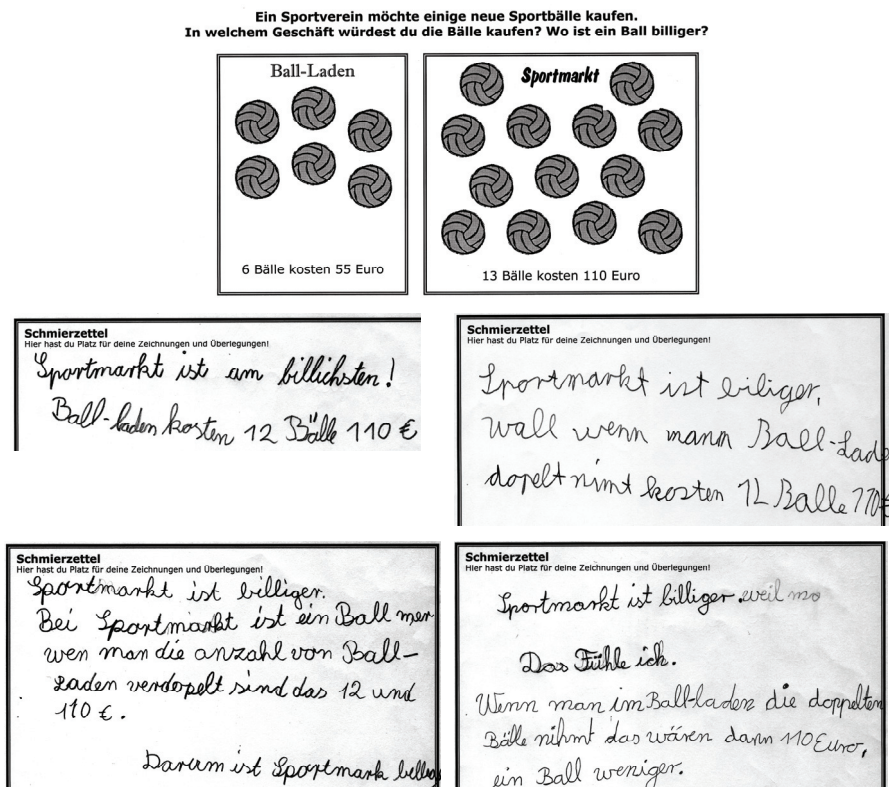 Ein Sportverein möchte einige neue Sportbälle kaufen.
In welchem Geschäft würdest du die Bälle kaufen? Wo ist ein Ball billiger?
Ball-Laden
6 Bälle kosten 55 Euro
Sportmarkt
13 Bälle kosten 110 Euro
Schmierzettel
Hier hast du Platz für deine Zeichnungen und Überlegungen!
Sportmarkt ist am billichsten!
Ball-laden kosten 12 Bälle 110 €
Schmierzettel
Hier hast du Platz für deine Zeichnungen und Überlegungen!
Sportmarkt ist biliger,
wall wenn mann Ball-Lade
dopelt nimt kosten 12 Balle 110 €
Schmierzettel
Hier hast du Platz für deine Zeichnungen und Überlegungen!
Sportmarkt ist billiger.
Bei Sportmarkt ist ein Ball mer
wen man die anzahl von Ball-
Laden verdopelt sind das 12 und
110 €.
Darum ist Sportmark
Schmierzettel
Hier hast du Platz für deine Zeichnungen und Überlegungen!
Sportmarkt ist billiger. weil
Das Fühle ich.
Wenn man im Ball-laden die doppelten
Bälle nihmt das wären dann 110 Euro,
ein Ball weniger.